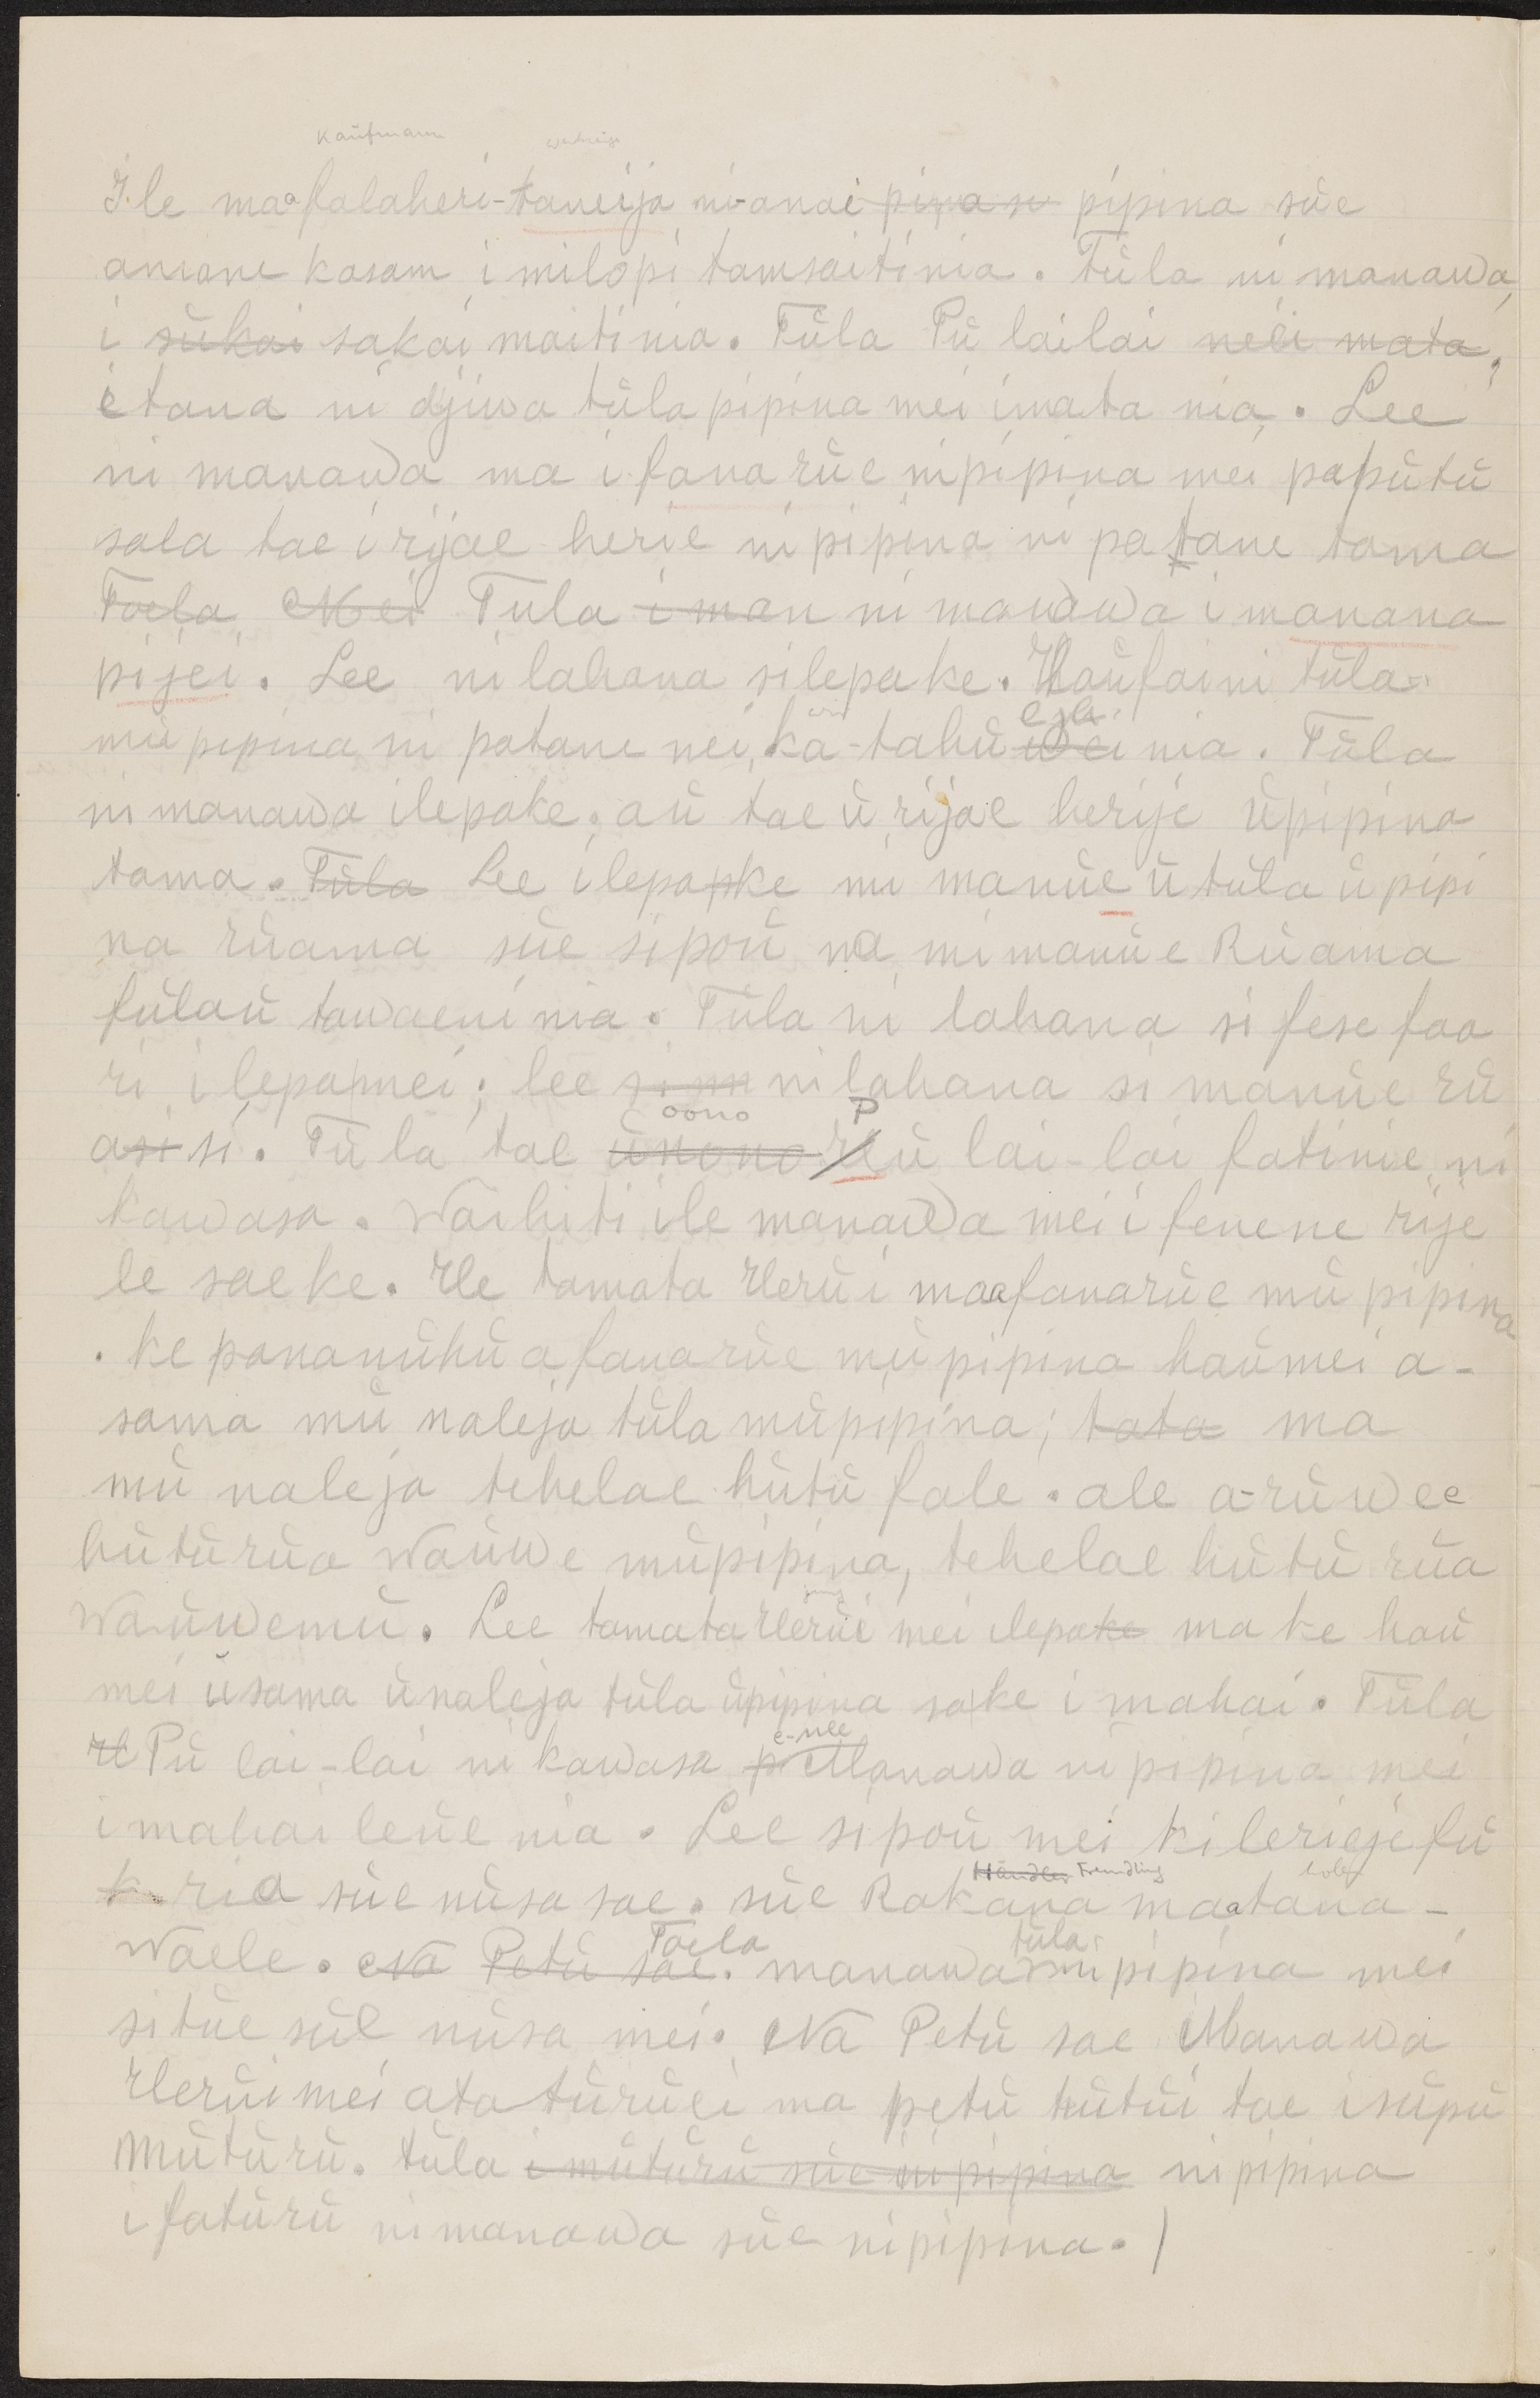 Kaufmann
Ile maafalaheri-taneija ni-anai pina si pipina süe
amane kasam i milopi tamsaitinia. Tüla ni manawa,
i sükai sakai maitinia. Tüla Pü lailai neli mata,
etana ni djiwa tüla pipina mei imata nia. Lee
ni manawa ma i fanarüe nipipina mei papütü
sala tae i rijae herie ni pipina ni patane tama
Toela Mei Tüla i man ni manawa i manana
pijei. Lee ni lahana silepake. Haüfaini tüla
mü pipina ni patane nei, kä-tahü nia. Tüla
ni manawa ilepake, aü tae ü rijae herije üpipina
tama. Tüla Lee ilepapke mi manüe ü tüla ü pipi
na rüama süe sipoü ma mimanüe Rüama
fülaü tawaeni nia. Tüla ni lahana si fese faa
ri ilepapmei; lee si m ni lahana si manüe rü
oono P
asi si. Tüla tae ünono ü lai-lai fatinie ni
kawasa. Waihiti ile manawa mei i fenene rije
le saeke. Ile tamata Ilerü i maafanarüe mü pipina
. ke pananühü a fanarüe mü pipina haümei a-
sama mü naleja tüla müpipina; tata ma
mü naleja tehelae hütü fale. ale a-rüwee
hütürüa waüwe müpipina, tehelae hütü rüa
waüwemü. Lee tamata Ilerüi mei ilepake ma ke haü
mei üsama ünaleja tüla üpipina sake i mahai. Tüla
e-nee
Pü lai-lai ni kawasa Manawa ni pipina mei
imahai leüe nia. Lee sipoü mei kilerieje fü
Händler Fremdling
ria süe nüsa sae. süe Rakana maatana-
Toela tüla
waele. Na Petü sae. manawa mü pipina mei
sitüe süe nüsa mei. Na Petü sae Manawa
Ilerüi mei ata türüei ma petü tütüi tae isüpü
mütürü. tüla i mütürü süe ni pipina ni pipina
i fatürü nimanawa süe nipipina.